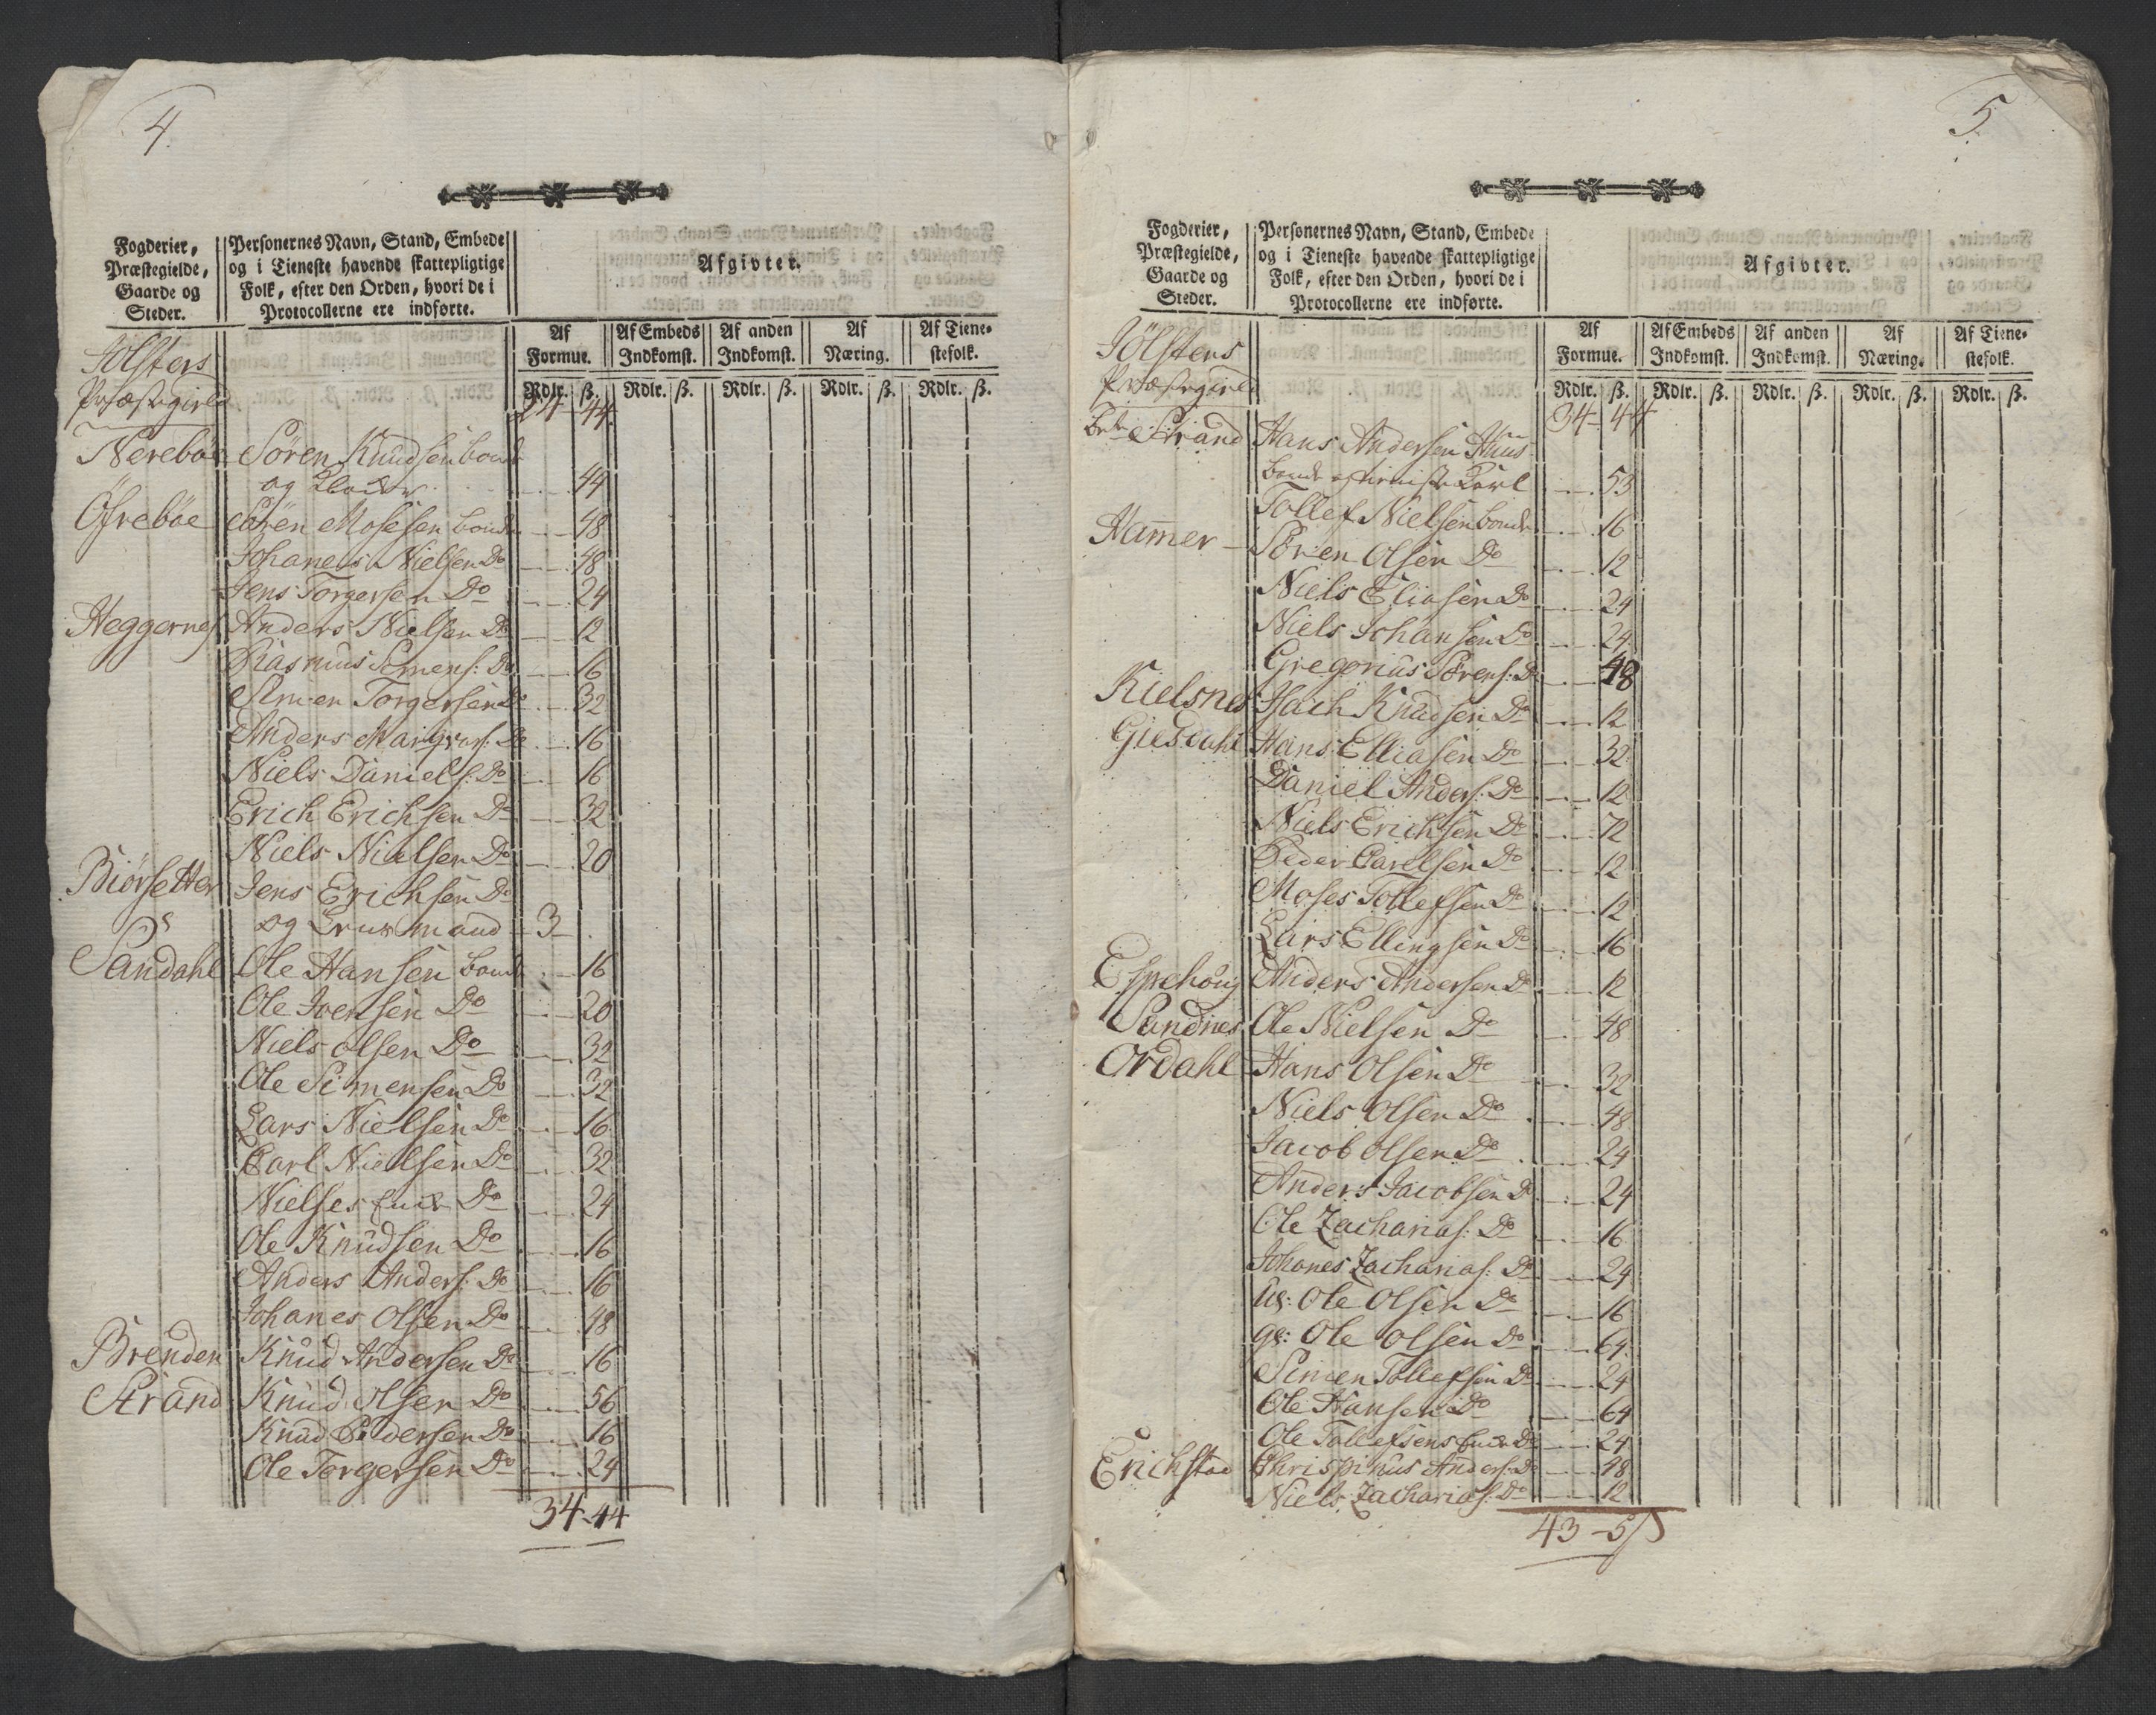 4.
Fogderier, Præstegielde, Gaarde og Steder.
Personernes Navn, Stand, Embede og i Tieneste havende skattepligtige Folk, efter den Orden, hvori de i Protocollerne ere indførte.
Afgivter.
Af Formue. Af Embeds Indkomst. Af anden Indkomst. Af Næring. Af Tienestefolk.
Rdlr. ß. Rdlr. ß. Rdlr. ß. Rdlr. ß. Rdlr. ß.
Jølsters
Præstegield 24 44.
Nerebøe Sören Knudsen bonde
og 44
Öfrebøe Sören Mosesen bonde 48
Johanes Nielsen Do 48
Jens Torgersen Do 24
Heggernes Anders Nielsen Do 12
Rasmus Simens: Do 16
Simen Torgersen Do 32
Anders Do 16
Niels Daniels: Do 16
Erich Erichsen Do 32
Niels Nielsen Do 20
Biörsetter Jens Erichsen Do
og mand 3
Sandahl Ole Hansen bonde 16
Ole Iversen Do 20
Niels olsen Do 32
Ole Simensen Do 32
Lars Nielsen Do 16
Carl Nielsen Do 32
Nielses Enke Do 24
Ole Knudsen Do 16
Anders Anders: Do 16
Johanes Olsen Do 48
Brenden Knud Andersen Do 16
Strand Knud Olsen Do 56
Knud Pedersen Do 16
Ole Torgersen Do 24
34-44
5.
Fogderier, Præstegielde, Gaarde og Steder.
Personernes Navn, Stand, Embede og i Tieneste havende skattepligtige Folk, efter den Orden, hvori de i Protocollerne ere indførte.
Afgivter.
Af Formue. Af Embeds Indkomst. Af anden Indkomst. Af Næring. Af Tienestefolk.
Rdlr. ß. Rdlr. ß. Rdlr. ß. Rdlr. ß. Rdlr. ß.
Jölsters
Præstegield 34-44
Strand Hans Andersen Huus
bonde 53
Tollef Nielsen bonde 16
Hamer Sören Olsen Do 12
Niels Eliasen Do 24
Niels Johansen Do 24
Gregorius Sörens: Do 48
Kielsnes Isach Knudsen Do 12
Giesdahl Hans Elliasen Do 32
Daniel Anders: Do 12
Niels Erichsen Do 72
Peder Carelsen Do 12
Moses Tollefsen Do 12
Lars Ellingsen Do 16
Espehoug Anders Andersen Do 12
Sandnes Ole Nielsen Do 48
Ordahl Hans Olsen Do 32
Niels Olsen Do 48
Jacob Olsen Do 24
Anders Jacobsen Do 24
Ole Zacharias: Do 16
Johanes Zacharias: Do 24
Ug: Ole Olsen Do 16
gl: Ole Olsen Do 64
Simen Tollefsen Do 24
Ole Hansen Do 64
Ole Tollefsens Enke Do 24
Erichstad Chrispinus Anders: Do 48
Niels Zacharias: Do 12
43-5ß